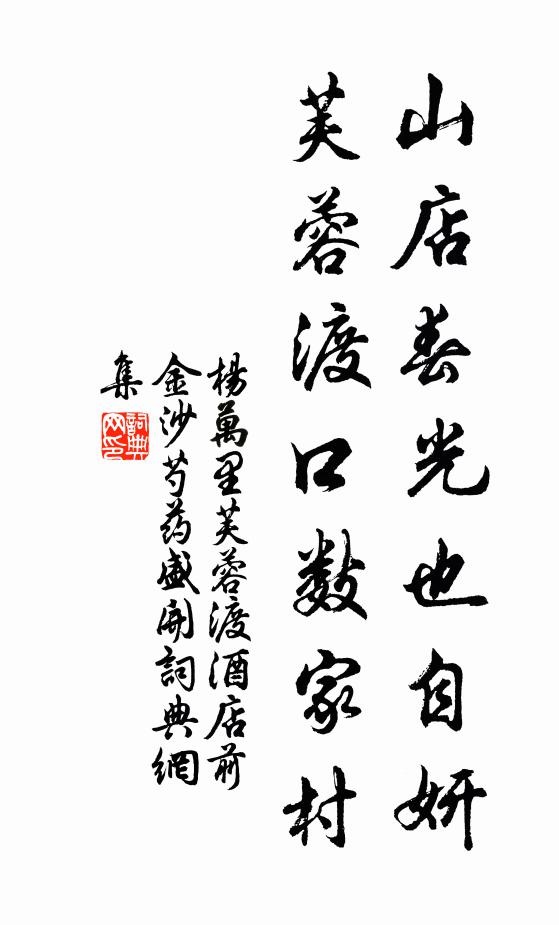 山店春光也自妍
芙蓉渡口數家村
楊萬里芙蓉渡酒店前
金沙芍药盛開詞典網
集
詞典
网印